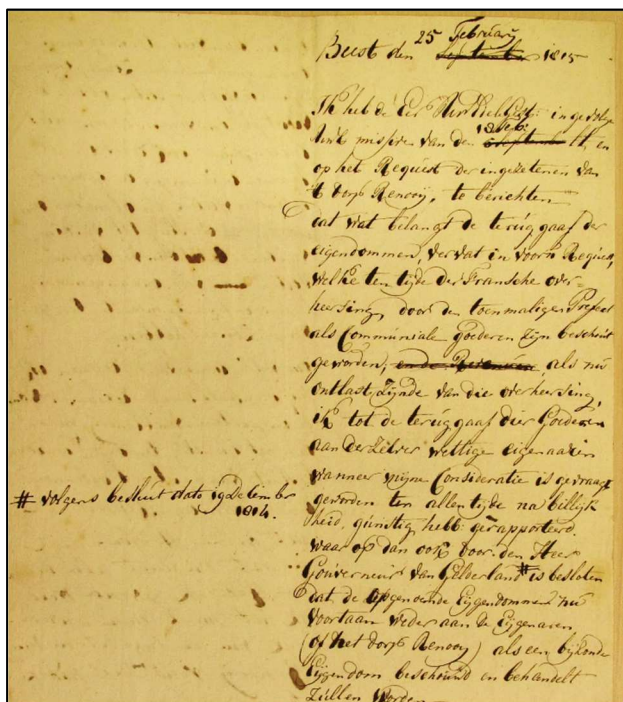 25 February
Beest den September 1815
Ik heb de Eer UwHoEdGest: ingevolge
missive van den 18 Feb: September ll, en
op het Request der ingezetenen van
't dorp Renooij, te berichten
dat wat belangt de terúg gaaf der
eigendommen, vervat in voorn Request,
welke ten tyde der Fransche over=
heersing, door den toenmaligen Prefect
als Communiale goederen zyn beschouwt
geworden, en de Revenuen als nú
ontlast zynde van die overheersing,
ik tot de terúg gaaf dier Goederen
aan derzelver wettige eigenaaren
wanneer myne Consideratie is gevraagt
geworden ten allen tyde na billyk
heid, gúnstig hebb: gerapporteerd.
waar op dan ook door den Heer
Goúverneúr van Gelderland # is besloten
dat de opgenoemde Eijgendommen nú
voortaan weder aan de Eijgenaren
(of het dorp Renooy) als een byzonder
Eijgendom beschouwd en behandelt
zúllen worden
# volgens besluit dato 19 December
1814.